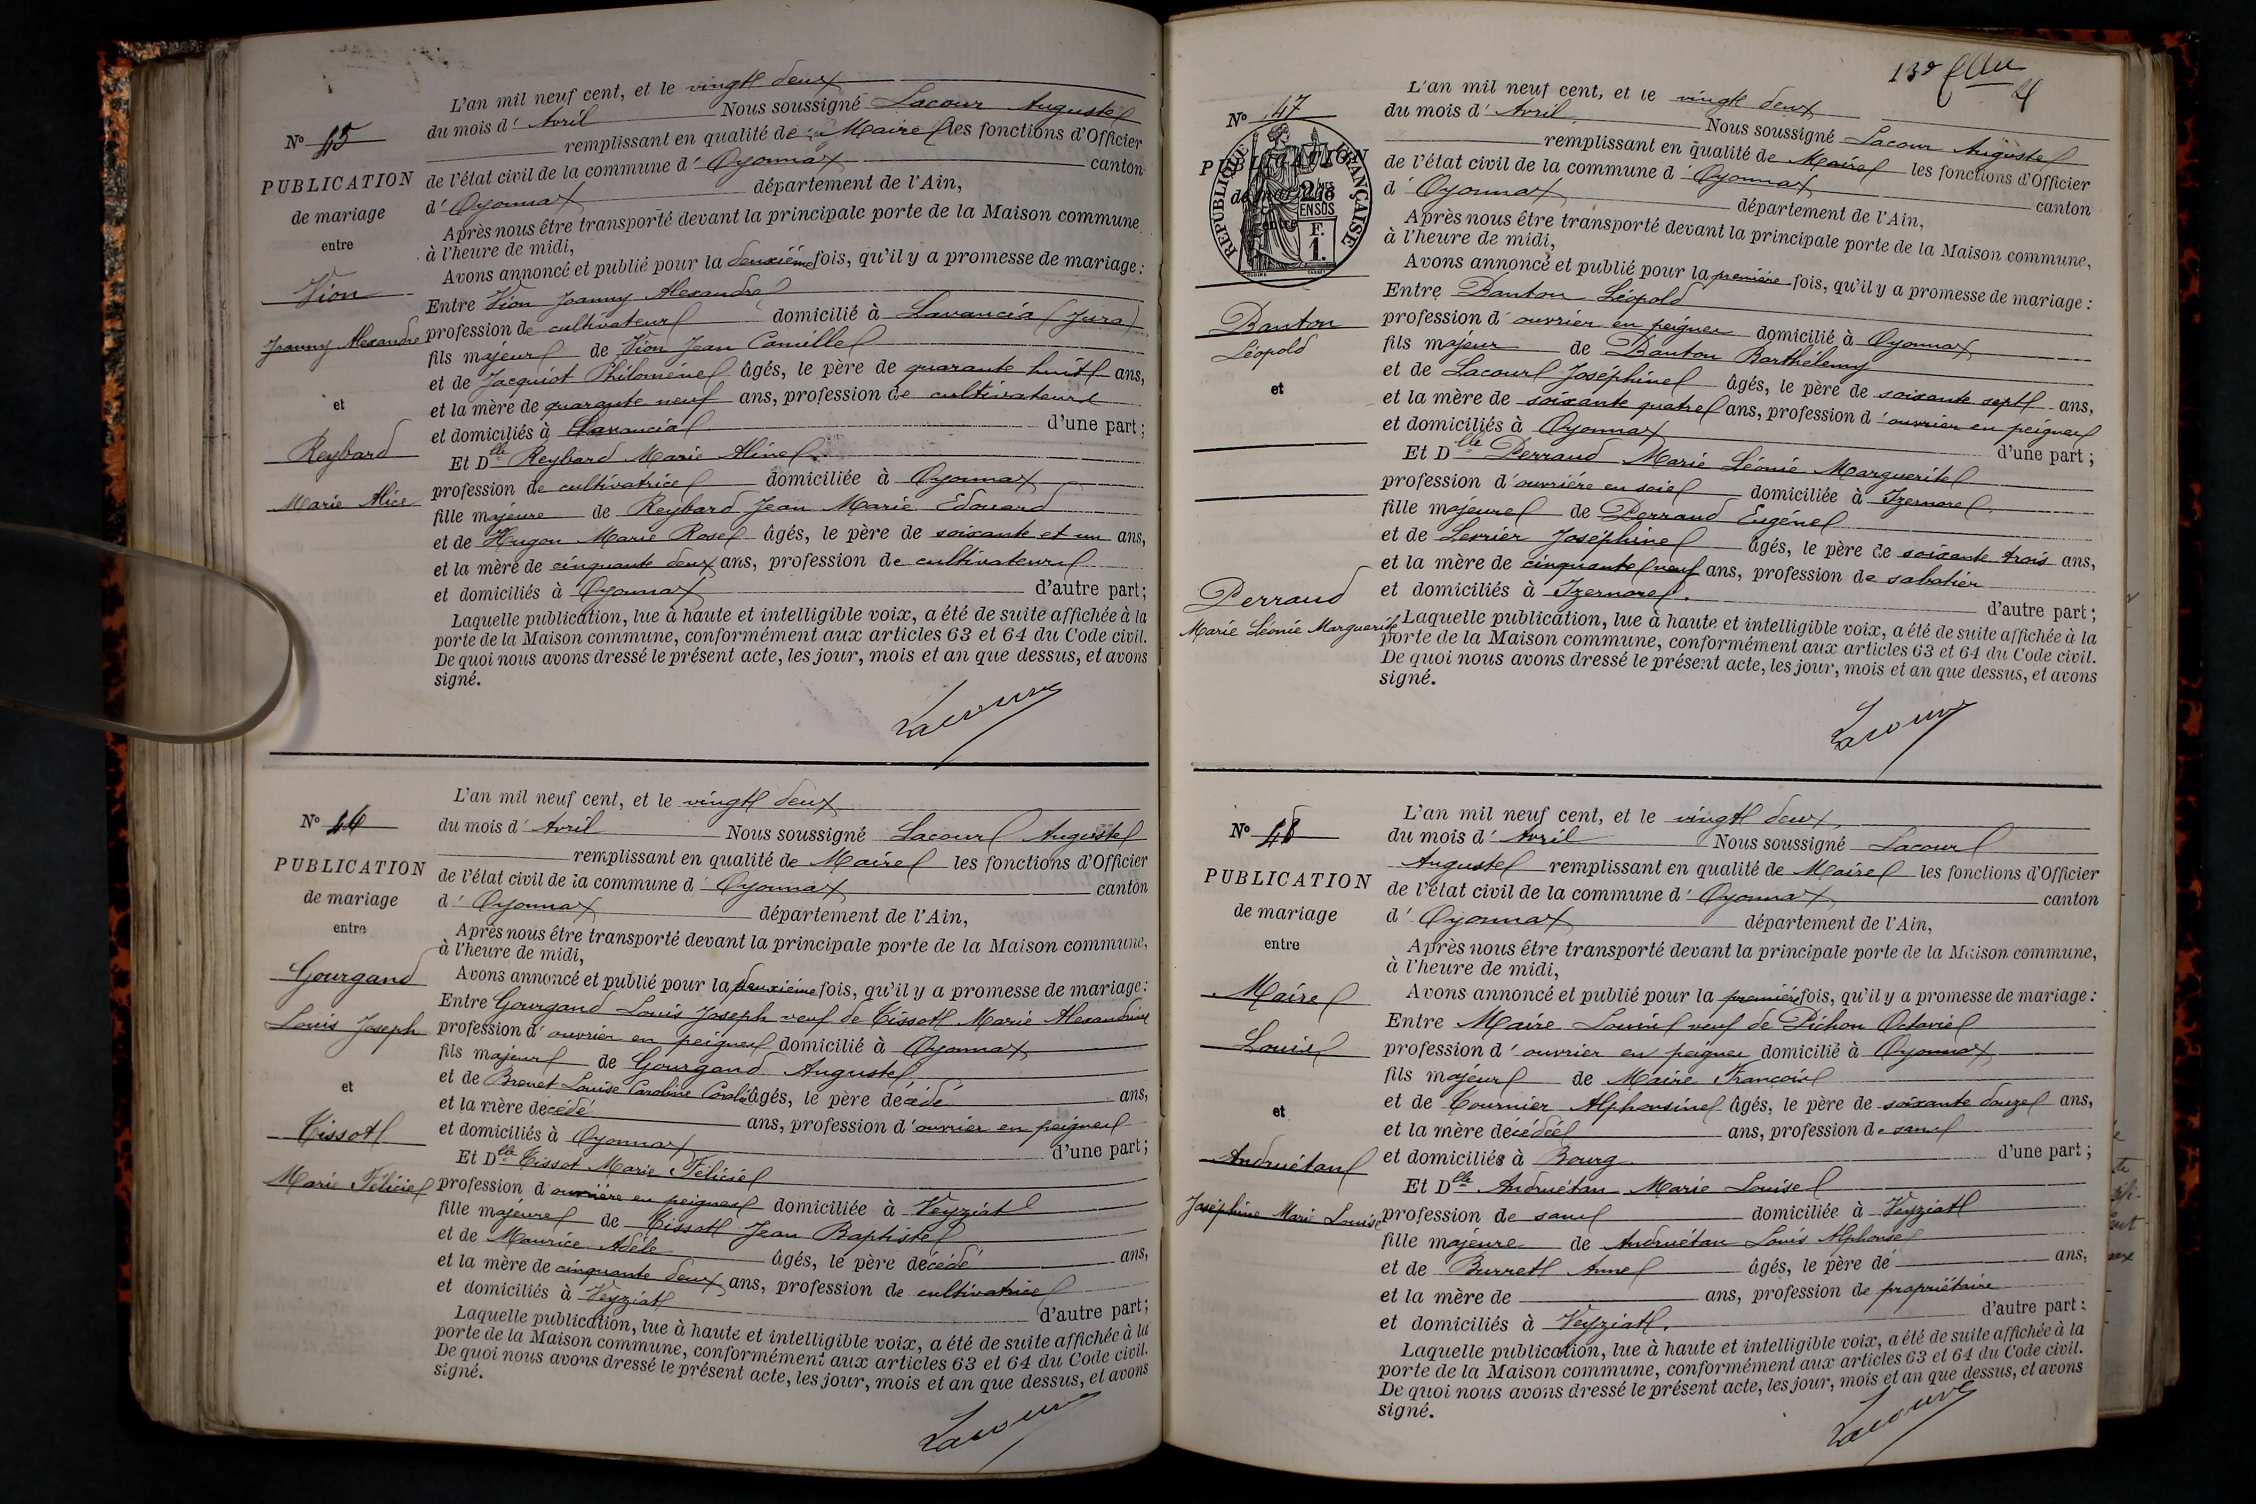 L'an mil neuf cent, et le vingt deux
du mois d' Avril Nous soussigné Lacour Auguste
remplissant en qualité de Maire les fonctions d'Officier
de l'état civil de la commune d' Oyonnax canton
d' Oyonnax département de l'Ain,
Après nous être transporté devant la principale porte de la Maison commune,
à l'heure de midi,
Avons annoncé et publié pour la deuxième fois, qu'il y a promesse de mariage :
Entre Vion Joanny Alexandre
profession de cultivateur domicilié à Lavancia (Jura)
fils majeur de Vion Jean Camille
et de Jacquiot Philomène âgés, le père de quarante huit ans,
et la mère de quarante neuf ans, profession de cultivateurs
et domiciliés à Lavancia d'une part ;
Et Dlle Reybard Marie Aline
profession de cultivatrice domiciliée à Oyonnax
fille majeure de Reybard Jean Marie Edouard
et de Hugon Marie Rose âgés, le père de soixante et un ans,
et la mère de cinquante deux ans, profession de cultivateurs
et domiciliés à Oyonnax d'autre part ;
Laquelle publication, lue à haute et intelligible voix, a été de suite affichée à la
porte de la Maison commune, conformément aux articles 63 et 64 du Code civil.
De quoi nous avons dressé le présent acte, les jour, mois et an que dessus, et avons
signé.
Lacour
No 45
PUBLICATION
de mariage
entre
Vion
Joanny Alexandre
et
Reybard
Marie Alice
L'an mil neuf cent, et le vingt deux
du mois d' Avril Nous soussigné Lacour Auguste
remplissant en qualité de Maire les fonctions d'Officier
de l'état civil de la commune d' Oyonnax canton
d' Oyonnax département de l'Ain,
Après nous être transporté devant la principale porte de la Maison commune,
à l'heure de midi,
Avons annoncé et publié pour la deuxième fois, qu'il y a promesse de mariage :
Entre Gourgand Louis Joseph veuf de Tissot Marie Alexandrine
profession d' ouvrier en peignes domicilié à Oyonnax
fils majeur de Gourgand Auguste
et de Brunet Louise Caroline âgés, le père décédé ans,
et la mère décédé ans, profession d' ouvrier en peignes
et domiciliés à Oyonnax d'une part ;
Et Dlle Tissot Marie Félicie
profession d' ouvrière en peignes domiciliée à Veyziat
fille majeure de Tissot Jean Baptiste
et de Maurice Adèle âgés, le père décédé ans,
et la mère de cinquante deux ans, profession de cultivatrice
et domiciliés à Veyziat d'autre part ;
Laquelle publication, lue à haute et intelligible voix, a été de suite affichée à la
porte de la Maison commune, conformément aux articles 63 et 64 du Code civil.
De quoi nous avons dressé le présent acte, les jour, mois et an que dessus, et avons
signé.
Lacour
No 46
PUBLICATION
de mariage
entre
Gourgand
Louis Joseph
et
Tissot
Marie Félicie
L'an mil neuf cent, et le vingt deux
du mois d' Avril Nous soussigné Lacour Auguste
remplissant en qualité de Maire les fonctions d'Officier
de l'état civil de la commune d' Oyonnax
d' Oyonnax département de l'Ain, canton
Après nous être transporté devant la principale porte de la Maison commune,
à l'heure de midi,
Avons annoncé et publié pour la première fois, qu'il y a promesse de mariage :
Entre Banton Léopold
profession d' ouvrier en peignes domicilié à Oyonnax
fils majeur de Banton Barthélemy
et de Lacour Joséphine âgés, le père de soixante sept ans,
et la mère de soixante quatre ans, profession d' ouvrier en peignes
et domiciliés à Oyonnax d'une part ;
Et Dlle Perraud Marie Léonie Marguerite
profession d' ouvrière en soie domiciliée à Izernore
fille majeure de Perraud Eugène
et de Levrier Joséphine âgés, le père de soixante trois ans,
et la mère de cinquante neuf ans, profession de sabotier
et domiciliés à Izernore. d'autre part ;
Laquelle publication, lue à haute et intelligible voix, a été de suite affichée à la
porte de la Maison commune, conformément aux articles 63 et 64 du Code civil.
De quoi nous avons dressé le présent acte, les jour, mois et an que dessus, et avons
signé.
Lacour
No 47
PUBLICATION
de mariage
entre
REPUBLIQUE FRANÇAISE
2/10
EN SUS
F.
1.
Banton
Léopold
et
Perraud
Marie Léonie Marguerite
L'an mil neuf cent, et le vingt deux
du mois d' Avril Nous soussigné Lacour
Auguste remplissant en qualité de Maire les fonctions d'Officier
de l'état civil de la commune d' Oyonnax canton
d' Oyonnax département de l'Ain,
Après nous être transporté devant la principale porte de la Maison commune,
à l'heure de midi,
Avons annoncé et publié pour la première fois, qu'il y a promesse de mariage :
Entre Maire Louis veuf de Pichon Octavie
profession d' ouvrier en peignes domicilié à Oyonnax
fils majeur de Maire François
et de Tournier Alphonsine âgés, le père de soixante douze ans,
et la mère décédée ans, profession de sans
et domiciliés à Bourg d'une part ;
Et Dlle Andruétan Marie Louise
profession de sans domiciliée à Veyziat
fille majeure de Andruétan Louis Alphonse
et de Burret Anne âgés, le père dé ans,
et la mère de ans, profession de propriétaire
et domiciliés à Veyziat. d'autre part ;
Laquelle publication, lue à haute et intelligible voix, a été de suite affichée à la
porte de la Maison commune, conformément aux articles 63 et 64 du Code civil.
De quoi nous avons dressé le présent acte, les jour, mois et an que dessus, et avons
signé.
Lacour
No 48
PUBLICATION
de mariage
entre
Maire
Louis
et
Andruétan
Joséphine Marie Louise